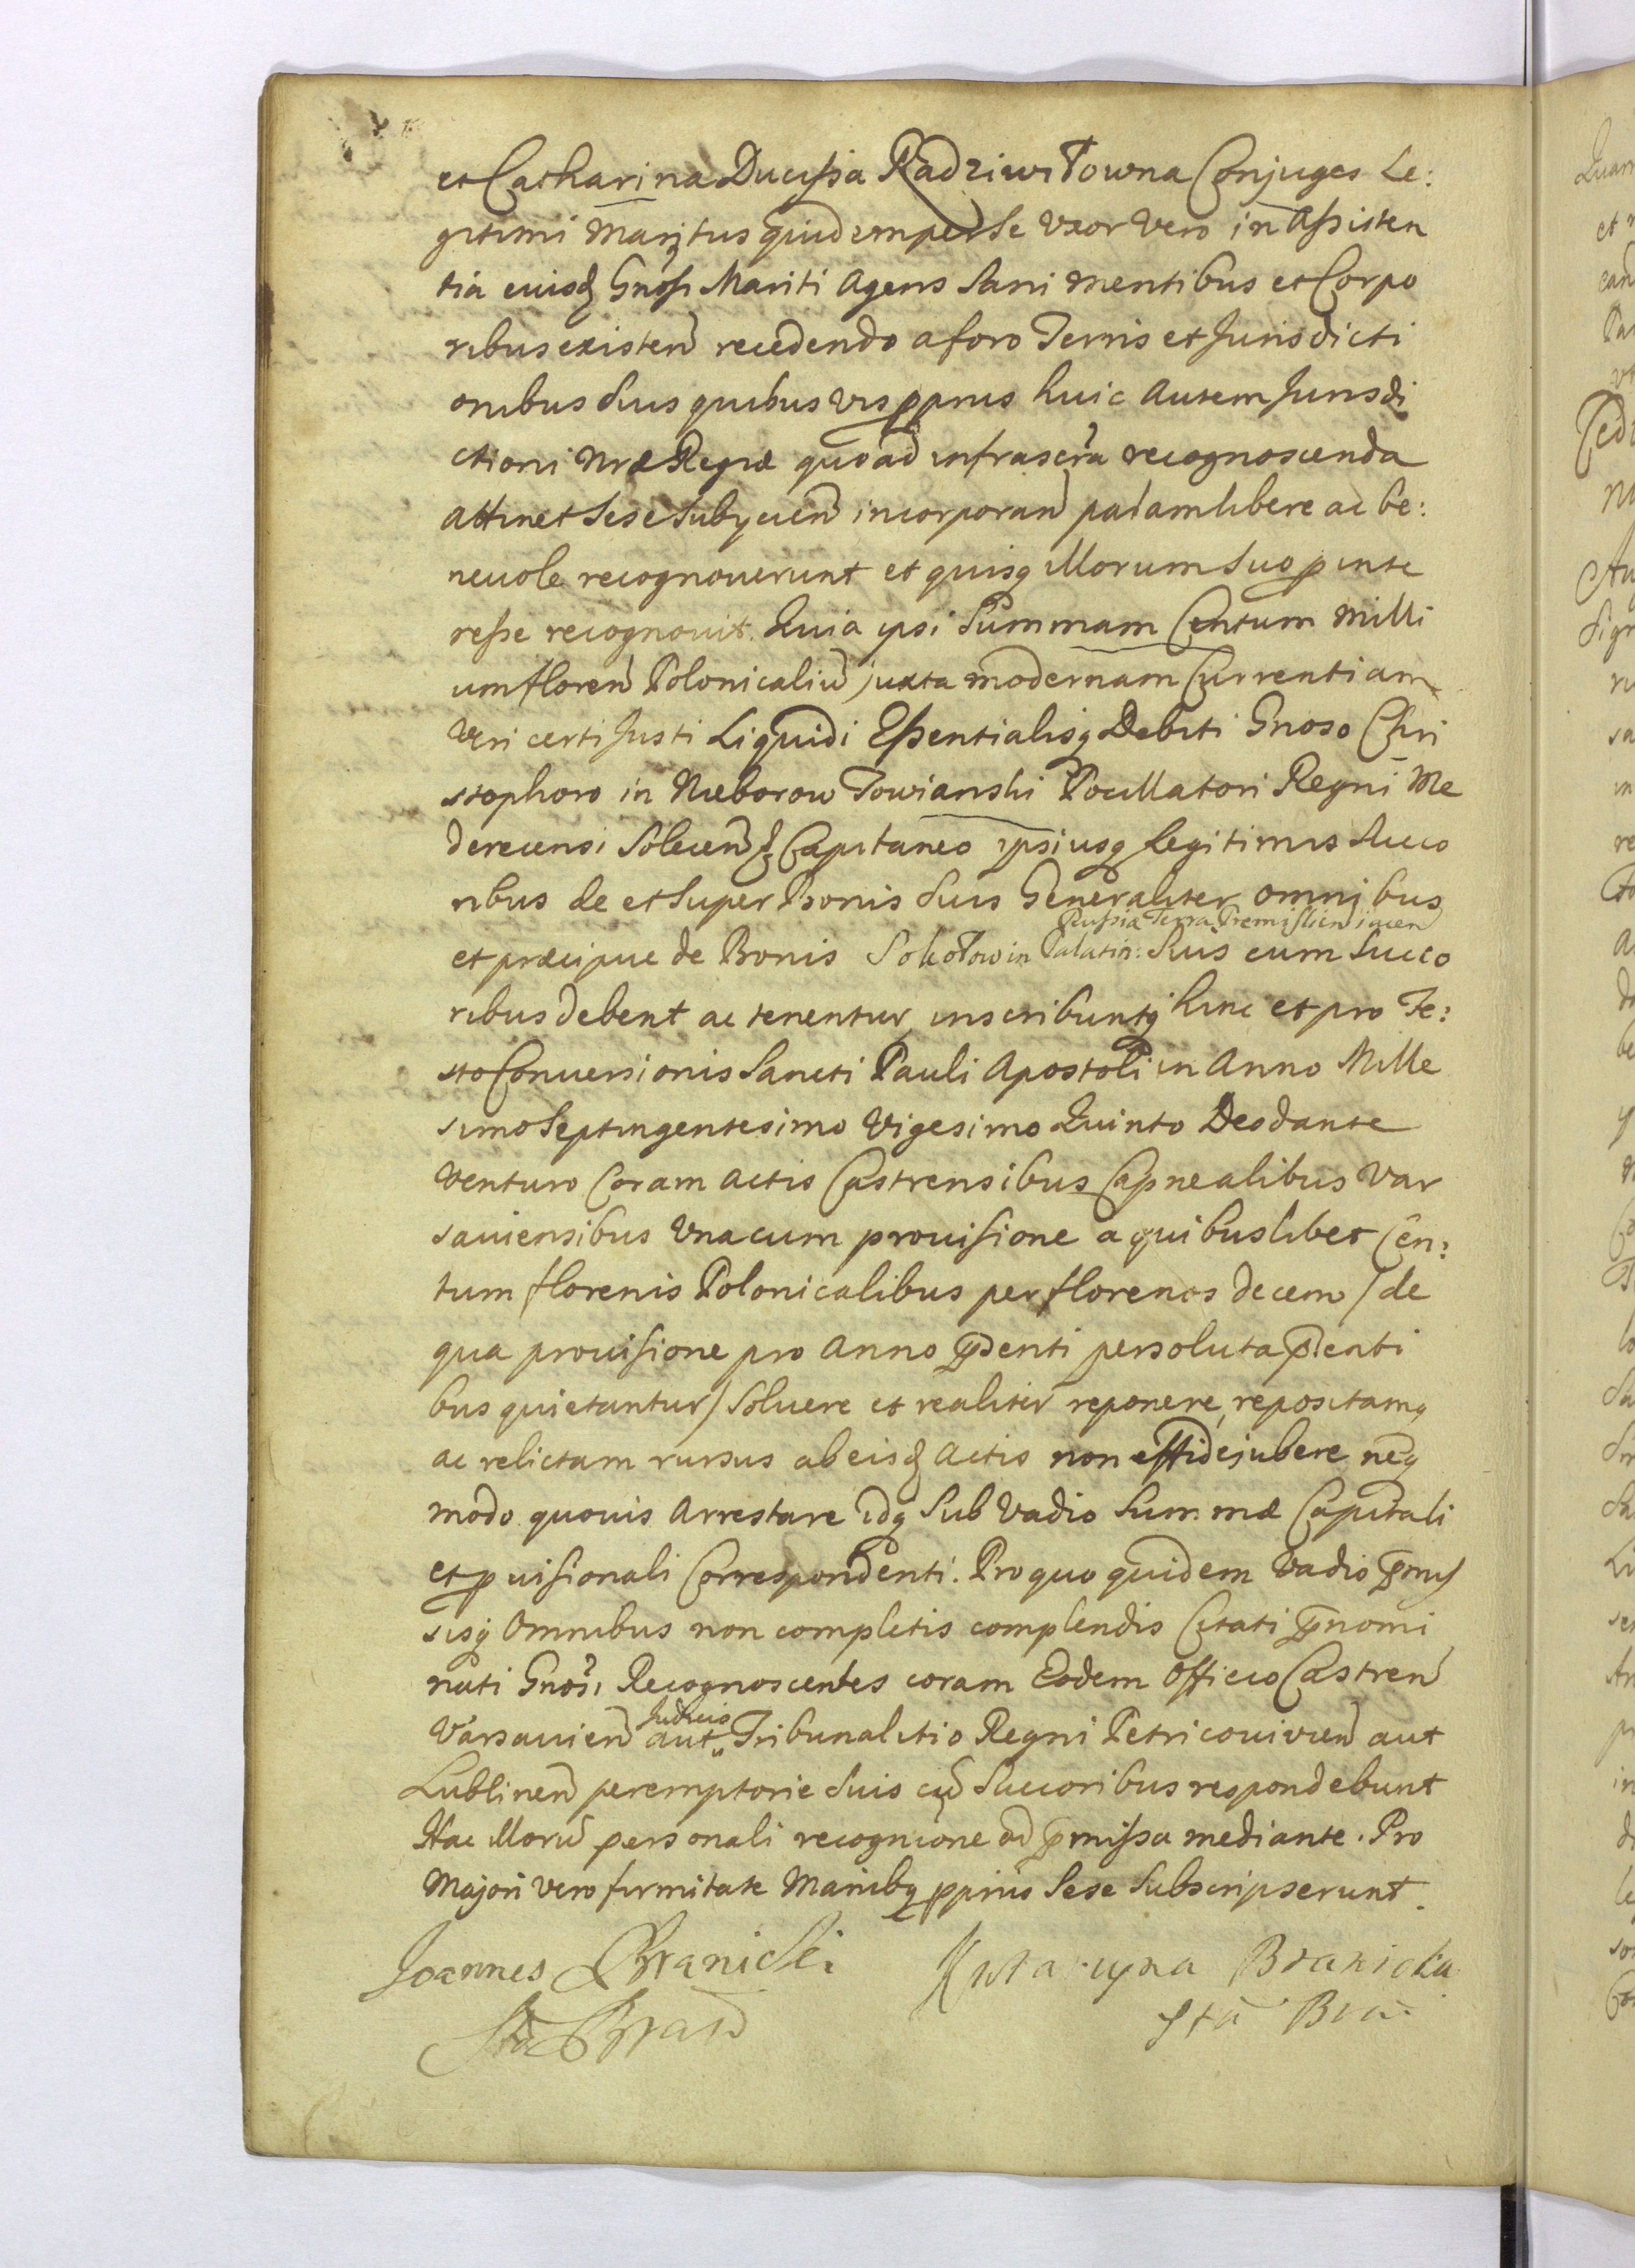 et Catharina Ducissa Radziwiłowna Conjuges Le:
gitimi Maritus quidem per se Uxor vero in Assisten
tia eiusd Gnosi Mariti Agens Sani mentibus et Corpo
ribus existen recedendo a foro Terris et Jurisdicti
onibus suis quibusvis pprijs huic autem Jurisdi
ctioni Nræ Regiæ quoad infrascra recognoscenda
attinet sese subycien incorporan palam libere ac be:
nevole recognoverunt et quisq illorum suo p inte
resse recognovit. Quia ipsi Summam Centum Milli
um floren Polonicaliu juxta modernam Currentiam
Veri certi Justi Liquidi Essentialisq Debiti Gnoso Chri
stophoro in Nieborow Towianski Pocillatori Regni Me
derecensi Solecen q Capitaneo ipsiusq legitimis Succo
ribus de et super Bonis suis Generaliter omnibus
Russiæ Terra Premislien iacen
et præcipue de Bonis Sokołow in Palatin: suis cum Succo
ribus debent ac tenentur inscribuntq hinc et pro Fe:
sto Conversionis Sancti Pauli Apostoli in Anno Mille
simo Septingentesimo Vigesimo Quinto Deo dante
venturo Coram actis Castrensibus Capnealibus Var
saviensibus una cum provisione a quibuslibet Cen:
tum florenis Polonicalibus per florenos decem / de
qua provisione pro Anno pdenti persoluta pdenti
bus quietantur / Solvere et realiter reponere, repositamq
ac relictam rursus ab eisd actis non effidejubere neq
modo quovis Arrestare idq sub Vadio Summæ Capitali
et pvisionali Correspondenti. Pro quo quidem Vadio pmis
sisq omnibus non completis complendis Citati pnomi
nati Gnosi Recognoscentes coram Eodem Officio Castren
Judicio
Varsavien aut Tribunalitio Regni Petricovien aut
Lublinen peremptorie suis cu Succoribus respondebunt
Hac illoru personali recognicione ad pmissa mediante. Pro
Majori vero firmitate Manibq pprijs sese subscripserunt.
Joannes Branicki Katarzyna Branicka
Sta Bran Sta Bra: